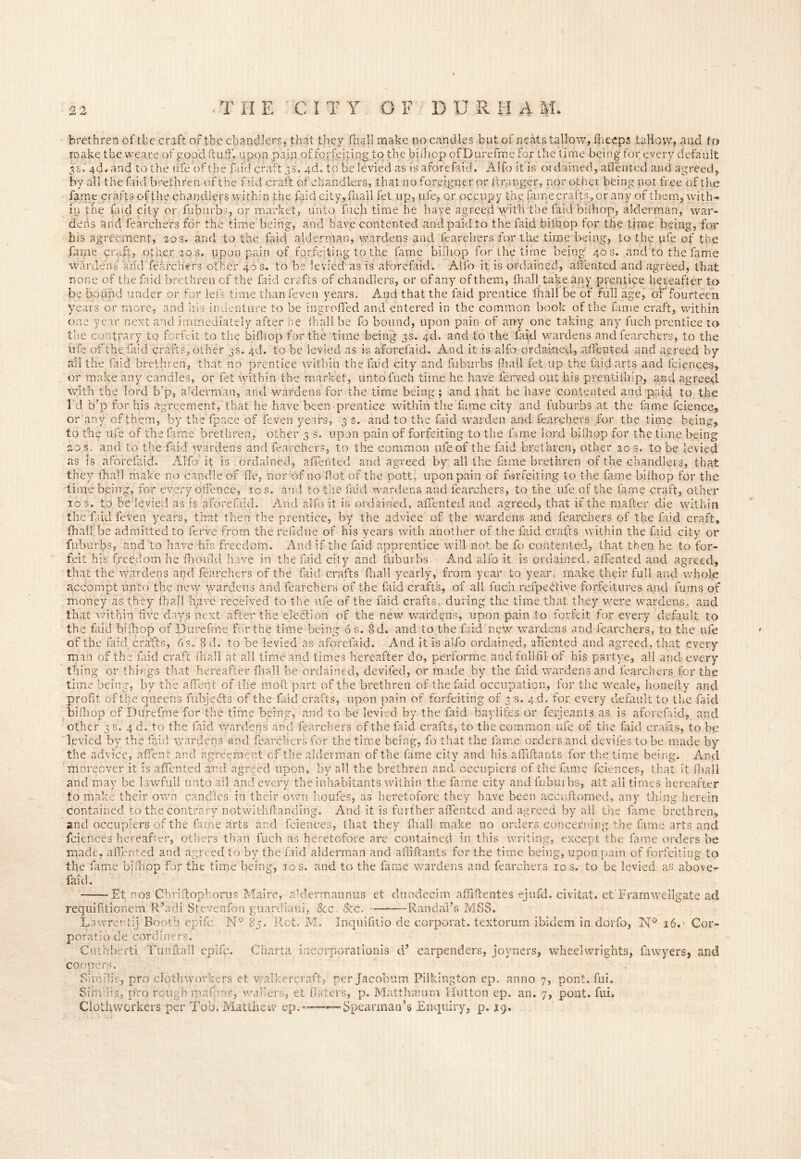 22 THE CITY OF DURHAM.
brethren of the craft of the chandlers, that they ſhall make no candles but of neats tallow, ſheeps tallow, and to
make the weare of good ſtuff, upon pain of forfeiting to the biſhop of Dureſme for the time being for every default
3s. 4d. and to the uſe of the ſaid craft 3s. 4d. to be levied as is aforeſaid. Alſo it is ordained, aſſented and agreed,
by all the ſaid brethren of the ſaid craft of chandlers, that no foreigner or ſtranger, nor other being not free of the
ſame crafts of the chandlers within the ſaid city, ſhall ſet up, uſe, or occupy the ſame crafts, or any of them, with-
in the ſaid city or ſuburbs, or market, unto ſuch time he have agreed with the ſaid biſhop, alderman, war-
dens and ſearchers for the time being, and have contented and paid to the ſaid biſhop for the time being, for
his agreement, 20s. and to the ſaid alderman, wardens and ſearchers for the time being, to the uſe of the
ſame craft, other 20s. upon pain of forfeiting to the ſame biſhop for the time being 40s. and to the ſame
wardens and ſearchers other 40s. to be levied as is aforeſaid. Alſo it is ordained, aſſented and agreed, that
none of the ſaid brethren of the ſaid crafts of chandlers, or of any of them, ſhall take any prentice hereafter to
be bound under or for leſs time than ſeven years. And that the ſaid prentice ſhall be of full age, of fourteen
years or more, and his indenture to be ingroſſed and entered in the common book of the ſame craft, within
one year next and immediately after he ſhall be ſo bound, upon pain of any one taking any ſuch prentice to
the contrary to forfeit to the biſhop for the time being 3s. 4d. and to the ſaid wardens and ſearchers, to the
uſe of the ſaid crafts, other 3s. 4d. to be levied as is aforeſaid. And it is alſo ordained, aſſented and agreed by
all the ſaid brethren, that no prentice within the ſaid city and ſuburbs ſhall ſet up the ſaid arts and ſciences,
or make any candles, or ſet within the market, unto ſuch time he have ſerved out his prentiſhip, and agreed
with the lord b'p, alderman, and wardens for the time being; and that he have contented and paid to the
l'd b'p for his agreement, that he have been prentice within the ſame city and ſuburbs at the ſame ſcience,
or any of them, by the ſpace of ſeven years, 3s. and to the ſaid warden and ſearchers for the time being,
to the uſe of the ſame brethren, other 3s. upon pain of forfeiting to the ſame lord biſhop for the time being
20s. and to the ſaid wardens and ſearchers, to the common uſe of the ſaid brethren, other 20s. to be levied
as is aforeſaid. Alſo it is ordained, aſſented and agreed by all the ſame brethren of the chandlers, that
they ſhall make no candle of ſle, nor of no ſlot of the pott, upon pain of forfeiting to the ſame biſhop for the
time being, for every offence, 10s. and to the ſaid wardens and ſearchers, to the uſe of the ſame craft, other
10s. to be levied as is aforeſaid. And alſo it is ordained, aſſented and agreed, that if the maſter die within
the ſaid ſeven years, that then the prentice, by the advice of the wardens and ſearchers of the ſaid craft,
ſhall be admitted to ſerve from the reſidue of his years with another of the ſaid crafts within the ſaid city or
ſuburbs, and to have his freedom. And if the ſaid apprentice will not be ſo contented, that then he to for-
feit his freedom he ſhould have in the ſaid city and ſuburbs And alſo it is ordained, aſſented and agreed,
that the wardens and ſearchers of the ſaid crafts ſhall yearly, from year to year, make their full and whole
accompt unto the new wardens and ſearchers of the ſaid crafts, of all ſuch reſpective forfeitures and ſums of
money as they ſhall have received to the uſe of the ſaid crafts, during the time that they were wardens, and
that within five days next after the election of the new wardens, upon pain to forfeit for every default to
the ſaid biſhop of Dureſme for the time being 6s. 8d. and to the ſaid new wardens and ſearchers, to the uſe
of the ſaid crafts, 6s. 8d. to be levied as aforeſaid. And it is alſo ordained, aſſented and agreed, that every
man of the ſaid craft ſhall at all time and times hereafter do, performe and fullfil of his partye, all and every
thing or things that hereafter ſhall be ordained, deviſed, or made by the ſaid wardens and ſearchers for the
time being, by the aſſent of the moſt part of the brethren of the ſaid occupation, for the weale, honeſty and
profit of the queens ſubjects of the ſaid crafts, upon pain of forfeiting of 3s. 4d. for every default to the ſaid
biſhop of Dureſme for the time being, and to be levied by the ſaid baylifes or ſerjeants as is aforeſaid, and
other 3s. 4d. to the ſaid wardens and ſearchers of the ſaid crafts, to the common uſe of the ſaid crafts, to be
levied by the ſaid wardens and ſearchers for the time being, ſo that the ſame orders and deviſes to be made by
the advice, aſſent and agreement of the alderman of the ſame city and his aſſiſtants for the time being. And
moreover it is aſſented and agreed upon, by all the brethren and occupiers of the ſame ſciences, that it ſhall
and may be lawfull unto all and every the inhabitants within the ſame city and ſuburbs, att all times hereafter
to make their own candles in their own houſes, as heretofore they have been accuſtomed, any thing herein
contained to the contrary notwithſtanding. And it is further aſſented and agreed by all the ſame brethren,
and occupiers of the ſame arts and ſciences, that they ſhall make no orders concerning the ſame arts and
ſciences hereafter, others than ſuch as heretofore are contained in this writing, except the ſame orders be
made, aſſented and agreed to by the ſaid alderman and aſſiſtants for the time being, upon pain of forfeiting to
the ſame biſhop for the time being, 10s. and to the ſame wardens and ſearchers 10s. to be levied as above-
ſaid.
——Et nos Chriſtophorus Maire, aldermannus et duodecim aſſiſtentes ejuſd. civitat. et Framwellgate ad
requiſitionem R'adi Stevenſon guardiani, &c. &c. ——Randal's MSS.
Lawrentij Booth epiſc. N° 85. Rot. M. Inquiſitio de corporat. textorum ibidem in dorſo, N° 16. Cor-
poratio de cordiners.
Cuthberti Tunſtall epiſc. Charta incorporationis d' carpenders, joyners, wheelwrights, ſawyers, and
coopers.
Similis, pro clothworkers et walkercraft, per Jacobum Pilkington ep. anno 7, pont. ſui.
Similis, pro rough maſons, wallers, et ſlaters, p. Matthæum Hutton ep. an. 7, pont. ſui.
Clothworkers per Tob. Matthew ep.——Spearman's Enquiry, p. 19.